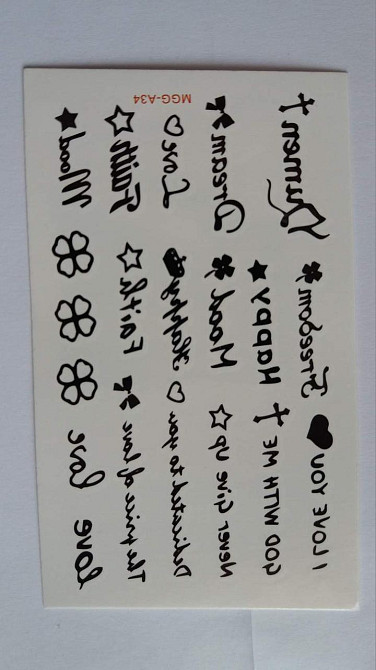 MGG-A34
Freedom
I LOVE YOU
Happy
GOD WITH ME
Dream
Mood
Never Give Up
Love
Happy
to you
Faith
Faith
The prince of
Mood
Love
Love